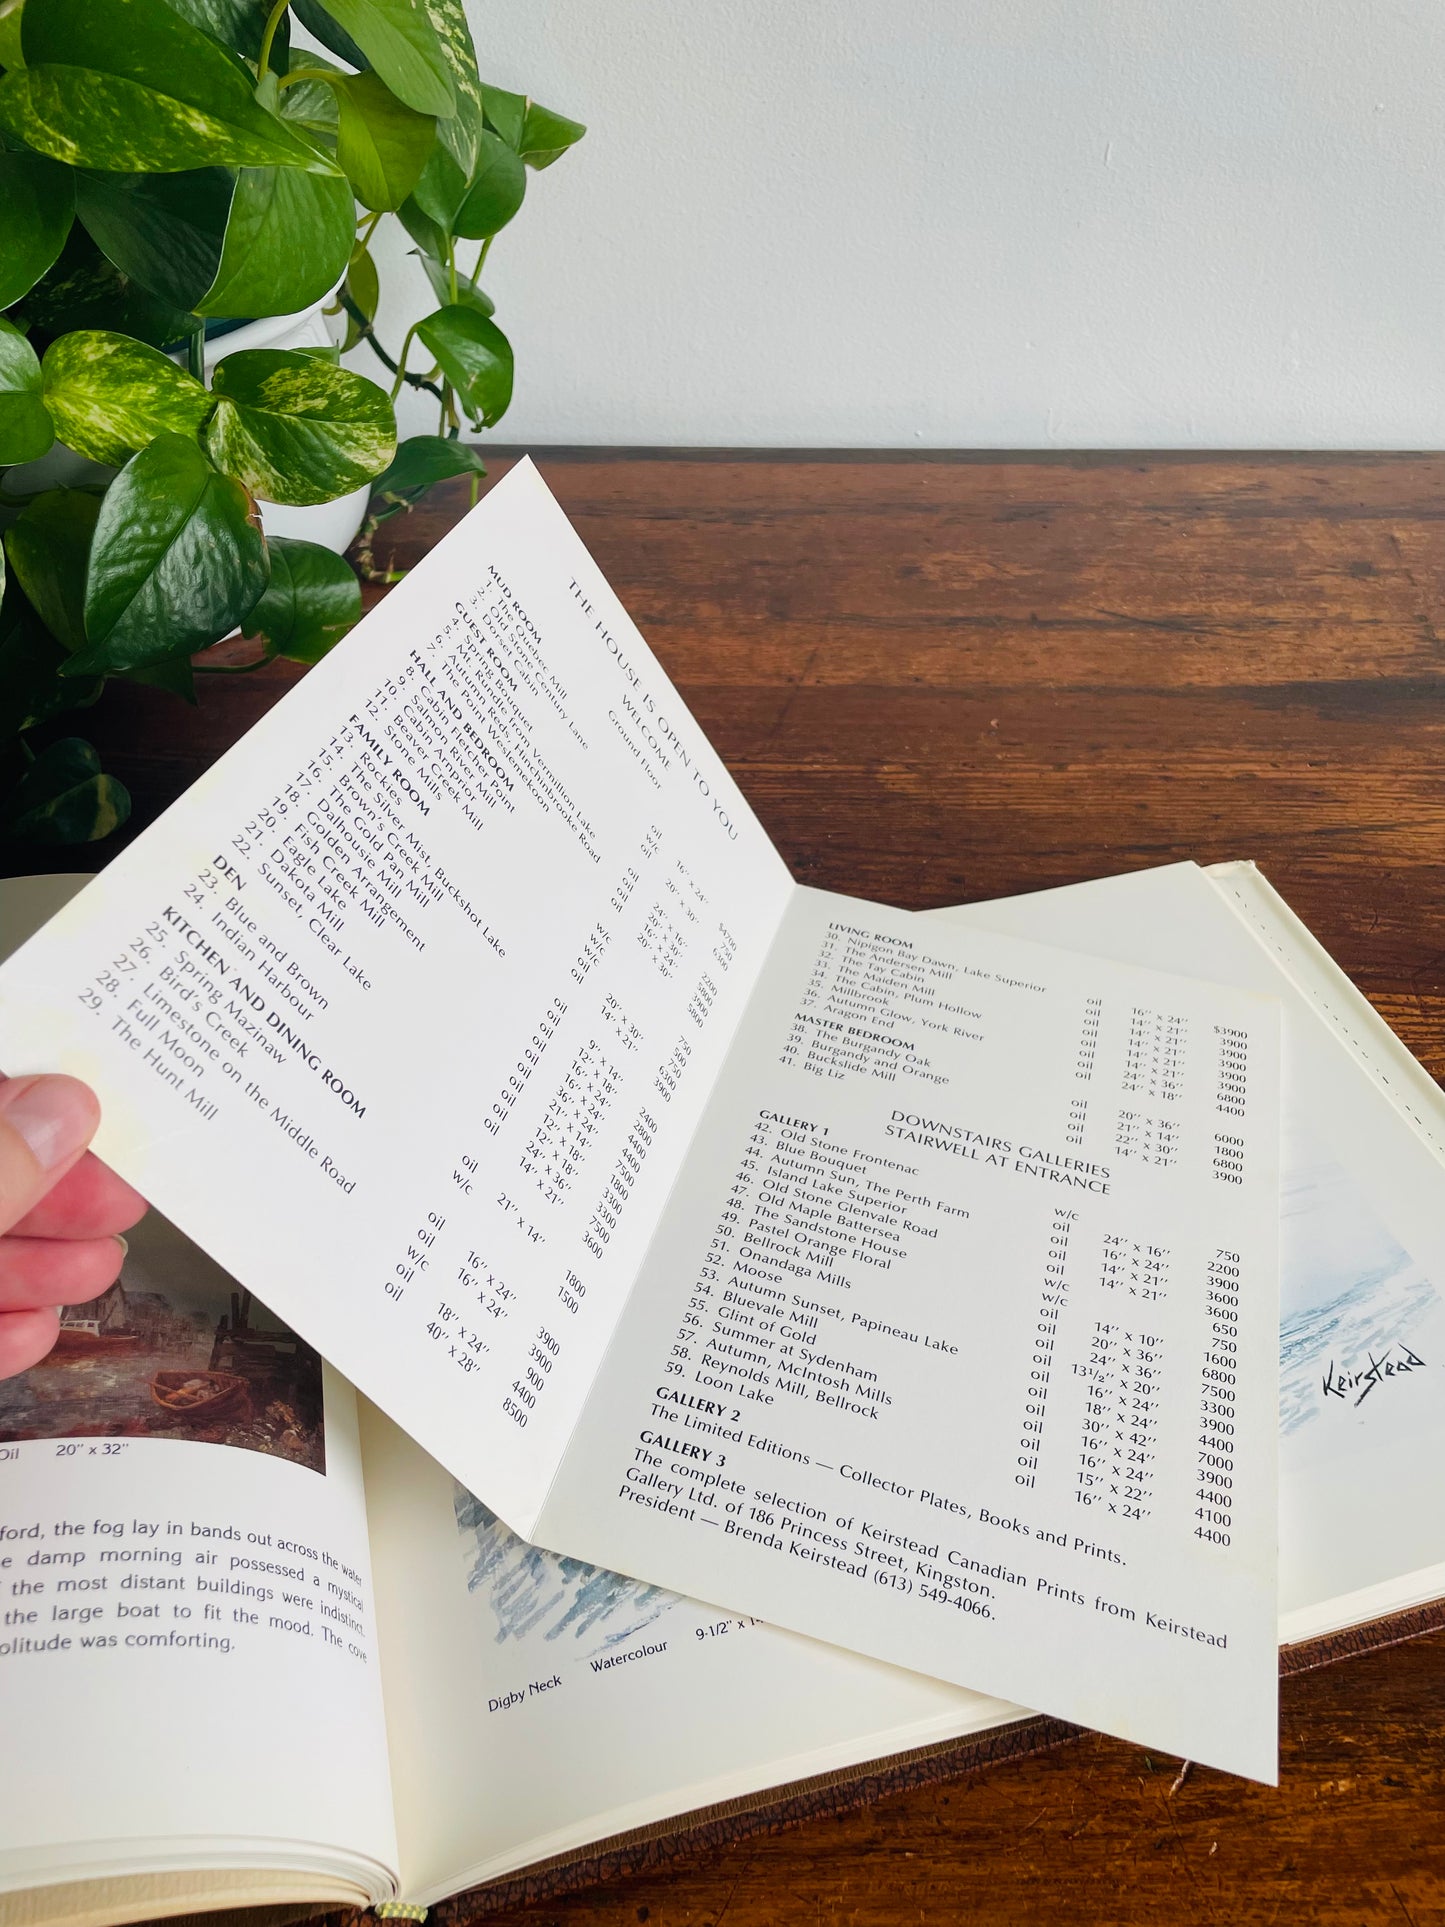 THE HOUSE IS OPEN TO YOU
WELCOME
Ground Floor
MUD ROOM
1. The Quebec Mill oil 16" x 24" $4700
2. Old Stone Century Lane w/c 750
3. Dorset Cabin oil 20" x 30" 6300
GUEST ROOM
4. Spring Bouquet oil 24" x 16" 2200
5. Mt. Rundle from Vermillion Lake oil 20" x 30" 5800
6. Autumn Reds, Hinchinbrooke Road oil 16" x 24" 3900
7. The Point Weslemekoon oil 20" x 30" 5800
HALL AND BEDROOM
8. Cabin Fletcher Point w/c 750
9. Salmon River Mill w/c 500
10. Cabin Arnprior w/c 750
11. Beaver Creek Mill oil 20" x 30" 6300
12. Stone Mills oil 14" x 21" 3900
FAMILY ROOM
13. Rockies oil 9" x 14" 2400
14. The Silver Mist, Buckshot Lake oil 12" x 18" 2800
15. Brown's Creek Mill oil 16" x 24" 4400
16. The Gold Pan Mill oil 16" x 24" 4400
17. Dalhousie Mill oil 36" x 24" 7500
18. Golden Arrangement oil 21" x 14" 1800
19. Fish Creek Mill oil 12" x 18" 3300
20. Eagle Lake oil 12" x 18" 3300
21. Dakota Mill oil 24" x 36" 7500
22. Sunset, Clear Lake oil 14" x 21" 3600
DEN
23. Blue and Brown oil 21" x 14" 1800
24. Indian Harbour w/c 1500
KITCHEN AND DINING ROOM
25. Spring Mazinaw oil 16" x 24" 3900
26. Bird's Creek oil 16" x 24" 3900
27. Limestone on the Middle Road w/c 900
28. Full Moon oil 18" x 24" 4400
29. The Hunt Mill oil 40" x 28" 8500
LIVING ROOM
30. Nipigon Bay Dawn, Lake Superior oil 16" x 24" $3900
31. The Andersen Mill oil 14" x 21" 3900
32. The Tay Cabin oil 14" x 21" 3900
33. The Maiden Mill oil 14" x 21" 3900
34. The Cabin, Plum Hollow oil 14" x 21" 3900
35. Millbrook oil
36. Autumn Glow, York River oil 24" x 36" 6800
37. Aragon End oil 24" x 18" 4400
MASTER BEDROOM
38. The Burgandy Oak oil 20" x 36" 6000
39. Burgandy and Orange oil 21" x 14" 1800
40. Buckslide Mill oil 22" x 30" 6800
41. Big Liz oil 14" x 21" 3900
DOWNSTAIRS GALLERIES
STAIRWELL AT ENTRANCE
GALLERY 1
42. Old Stone Frontenac w/c 750
43. Blue Bouquet oil 24" x 16" 2200
44. Autumn Sun, The Perth Farm oil 16" x 24" 3900
45. Island Lake Superior oil 14" x 21" 3600
46. Old Stone Glenvale Road oil 14" x 21" 3600
47. Old Maple Battersea w/c 650
48. The Sandstone House w/c 750
49. Pastel Orange Floral oil 14" x 10" 1600
50. Bellrock Mill oil 20" x 36" 6800
51. Onandaga Mills oil 24" x 36" 7500
52. Moose oil 13½" x 20" 3300
53. Autumn Sunset, Papineau Lake oil 16" x 24" 3900
54. Bluevale Mill oil 18" x 24" 4400
55. Glint of Gold oil 30" x 42" 7000
56. Summer at Sydenham oil 16" x 24" 3900
57. Autumn, McIntosh Mills oil 16" x 24" 4400
58. Reynolds Mill, Bellrock oil 15" x 22" 4100
59. Loon Lake oil 16" x 24" 4400
GALLERY 2
The Limited Editions — Collector Plates, Books and Prints.
GALLERY 3
The complete selection of Keirstead Canadian Prints from Keirstead
Gallery Ltd. of 186 Princess Street, Kingston.
President — Brenda Keirstead (613) 549-4066.
Keirstead
Oil 20" x 32"
ford, the fog lay in bands out across the water
damp morning air possessed a mystical
the most distant buildings were indistinct.
the large boat to fit the mood. The cove
olitude was comforting.
Digby Neck Watercolour 9-1/2" x